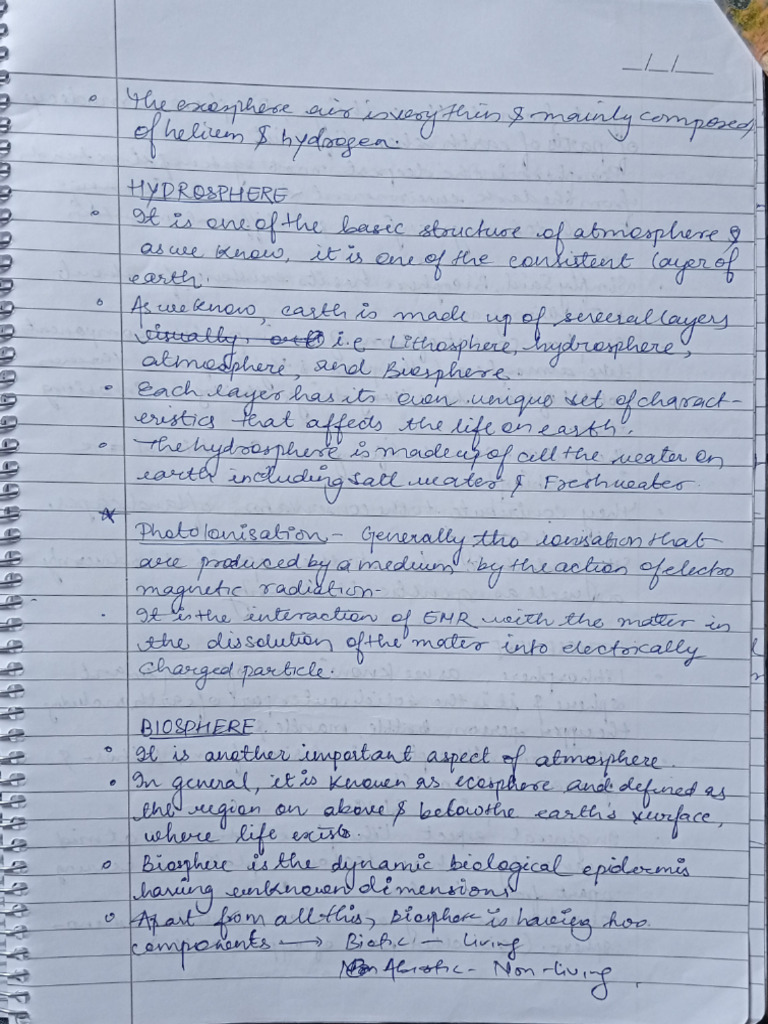 _/_/_
The exosphere air is very thin & mainly composed
of helium & hydrogen.
HYDROSPHERE
It is one of the basic structure of atmosphere &
as we know, it is one of the consistent layer of
earth.
As we know, earth is made up of several layers
visually, i.e. Lithosphere, hydrosphere,
atmosphere, and Biosphere.
Each layer has its own unique set of charact-
eristics that affects the life on earth.
The hydrosphere is made up of all the water on
earth including salt water & Freshwater
Photoionisation - Generally the ionisation that
are produced by a medium by the action of electro
magnetic radiation-
It is the interaction of EMR with the matter in
the dissolution of the matter into electrically
charged particle.
BIOSPHERE
It is another important aspect of atmosphere.
In general, it is known as ecosphere and defined as
the region on above & below the earth's surface,
where life exists.
Biosphere is the dynamic biological epidermis
having unknown dimensions
Apart from all this, Biosphere is having two
components → Biotic - Living
Abiotic - Non-living.